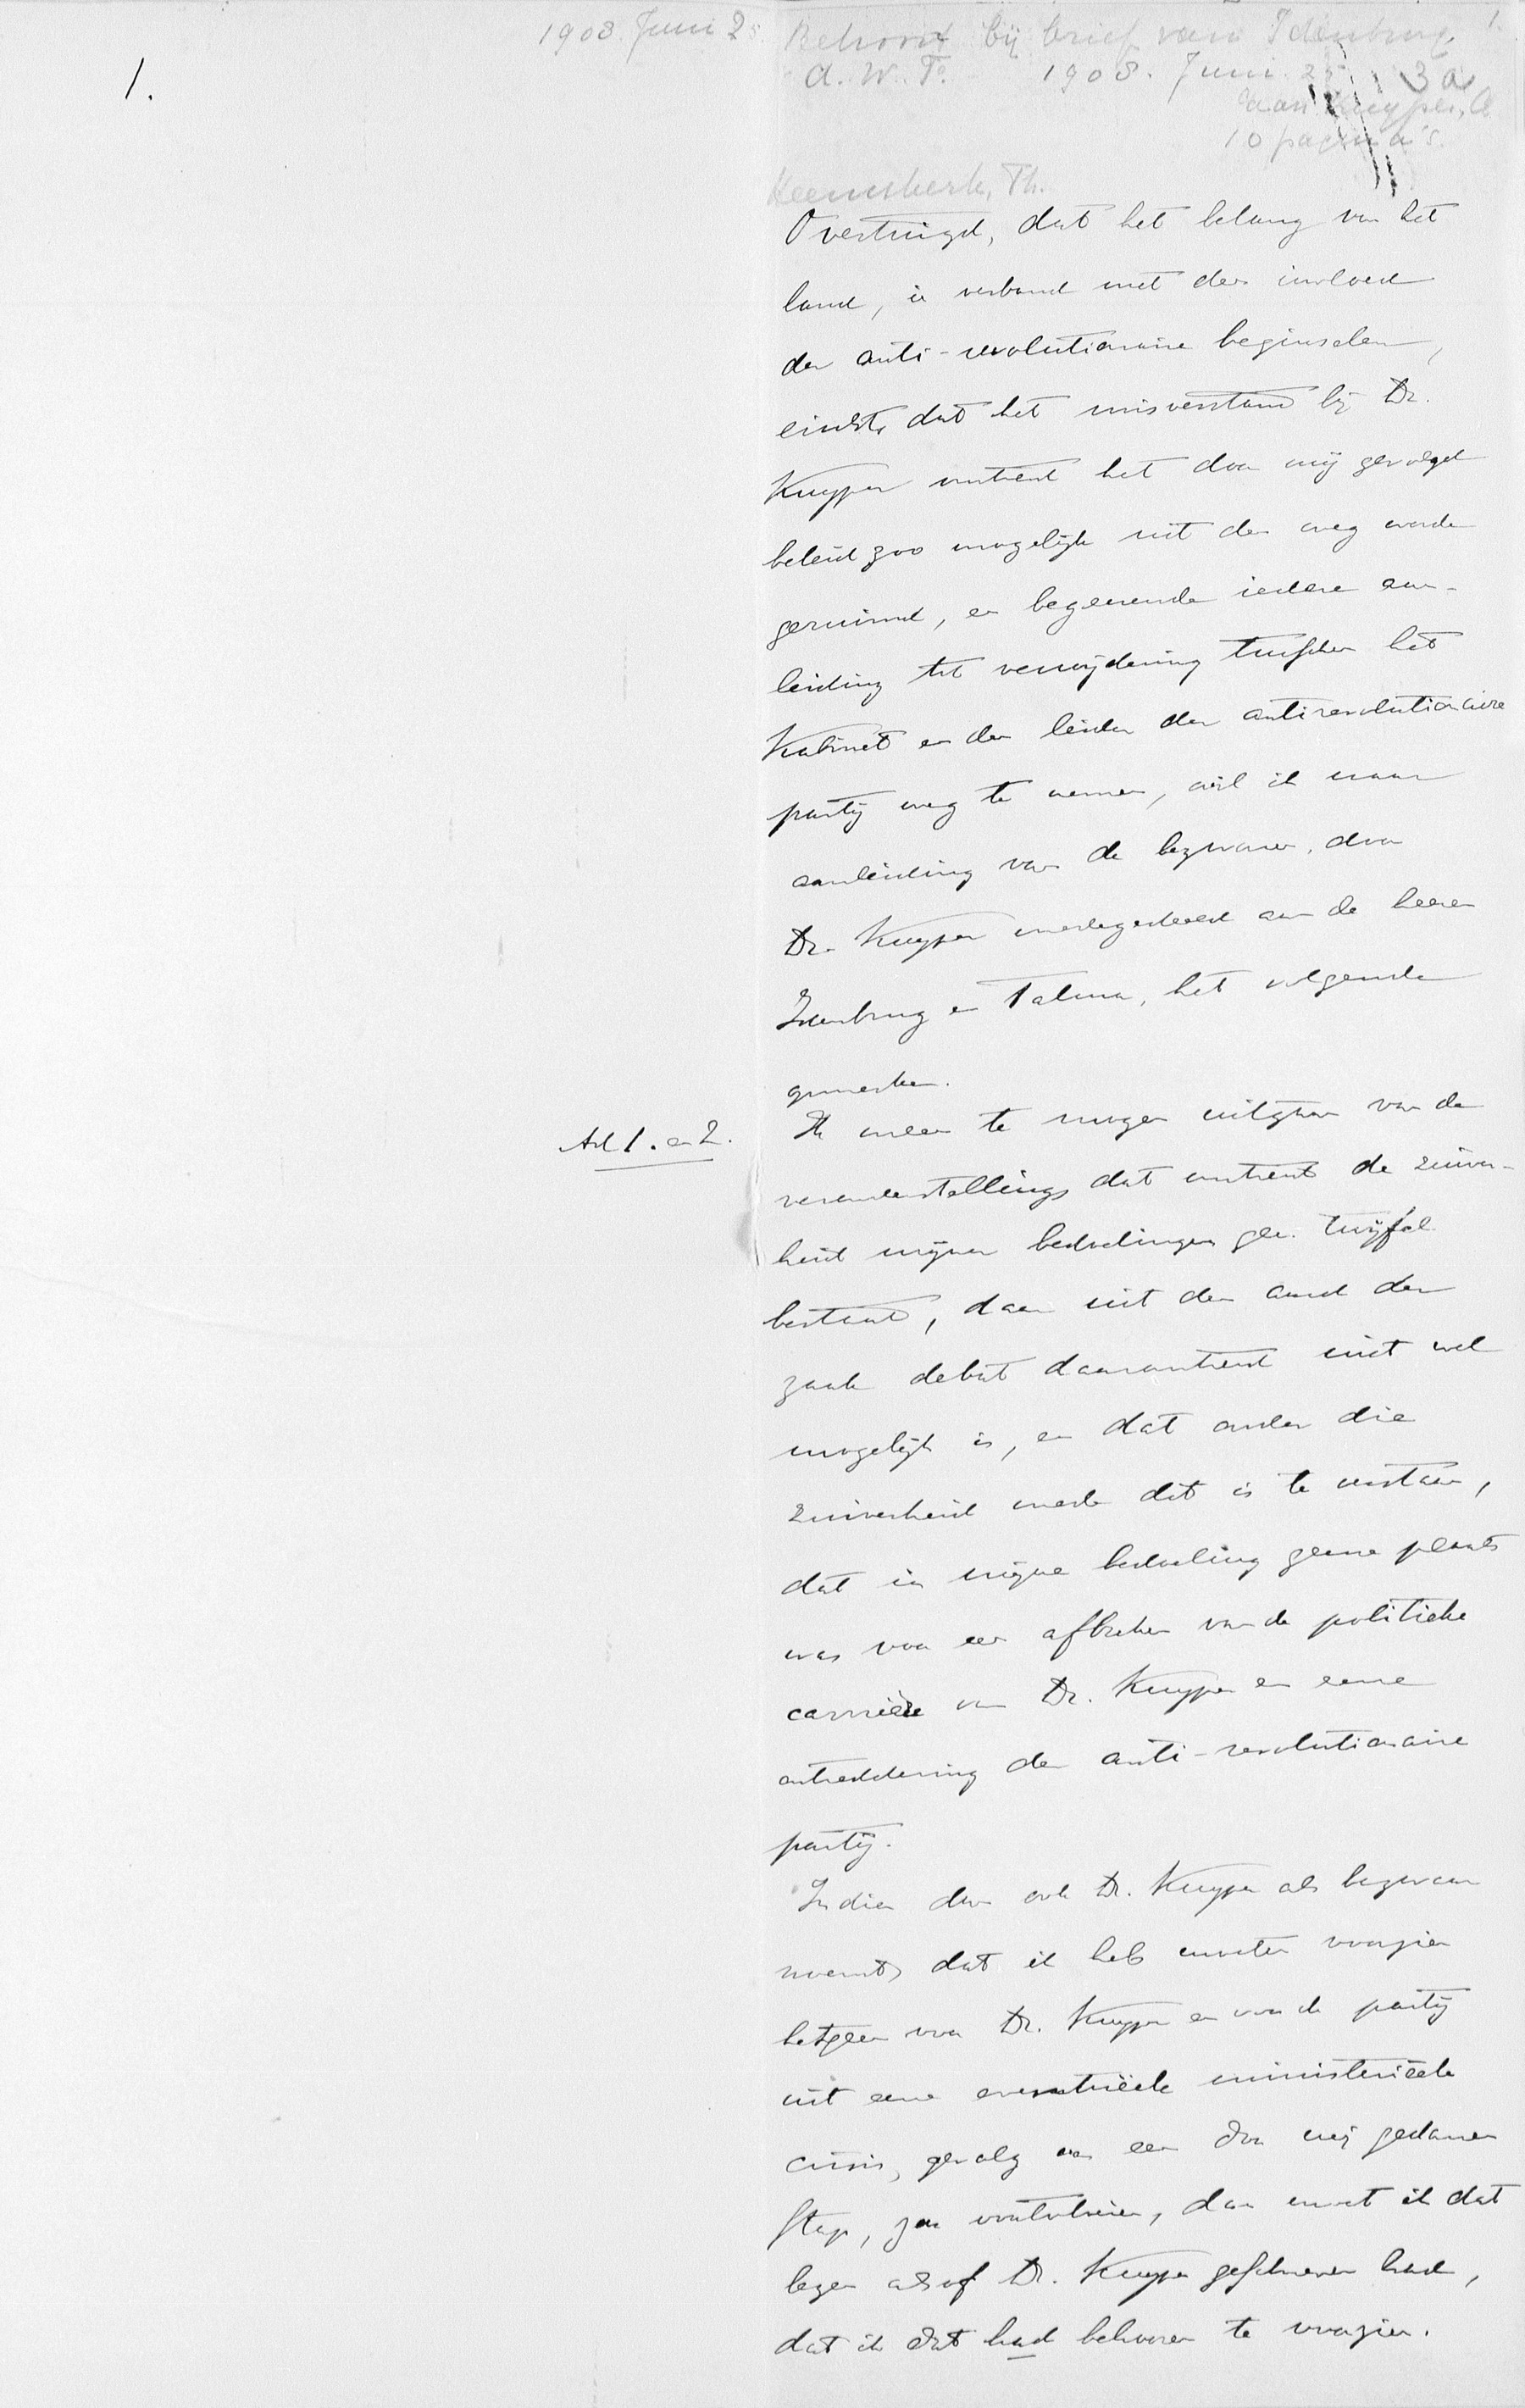 1908. Juni 25. Behoort bij brief van Idenburg, 1.
A. W. F. 1908. Juni. 25 3a
1. aan Kuyper, A
10 pagina's.
Heemskerk, Th.
Overtuigd, dat het belang van het
land, in verband met den invloed
der anti-revolutionaire beginselen,
eischt, dat het misverstand bij Dr.
Kuyper omtrent het door mij gevolgd
beleid zoo mogelijk uit den weg worde
geruimd, en begeerende iedere aan-
leiding tot verwijdering tusschen het
Kabinet en den leider der antirevolutionaire
partij weg te nemen, wil ik naar
aanleiding van de bezwaren, door
Dr. Kuyper medegedeeld aan de heeren
Idenburg en Talma, het volgende
opmerken.
Ad 1. en 2. Ik meen te mogen uitgaan van de
veronderstelling, dat omtrent de zuiver-
heid mijner bedoelingen geen twijfel
bestaat, daar uit den aard der
zaak debat daaromtrent niet wel
mogelijk is, en dat onder die
zuiverheid mede dit is te verstaan,
dat in mijne bedoeling geene plaats
was voor een afbreken van de politieke
carrière van Dr. Kuyper en eene
ontreddering der anti-revolutionaire
partij.
Indien dan ook Dr. Kuyper als bezwaar
noemt, dat ik heb moeten voorzien
hetgeen voor Dr. Kuyper en voor de partij
uit eene eventueele ministerieele
crisis, gevolg van een door mij gedanen
stap, zou voortvloeien, dan moet ik dat
lezen alsof Dr. Kuyper geschreven had,
dat ik dat had behooren te voorzien.